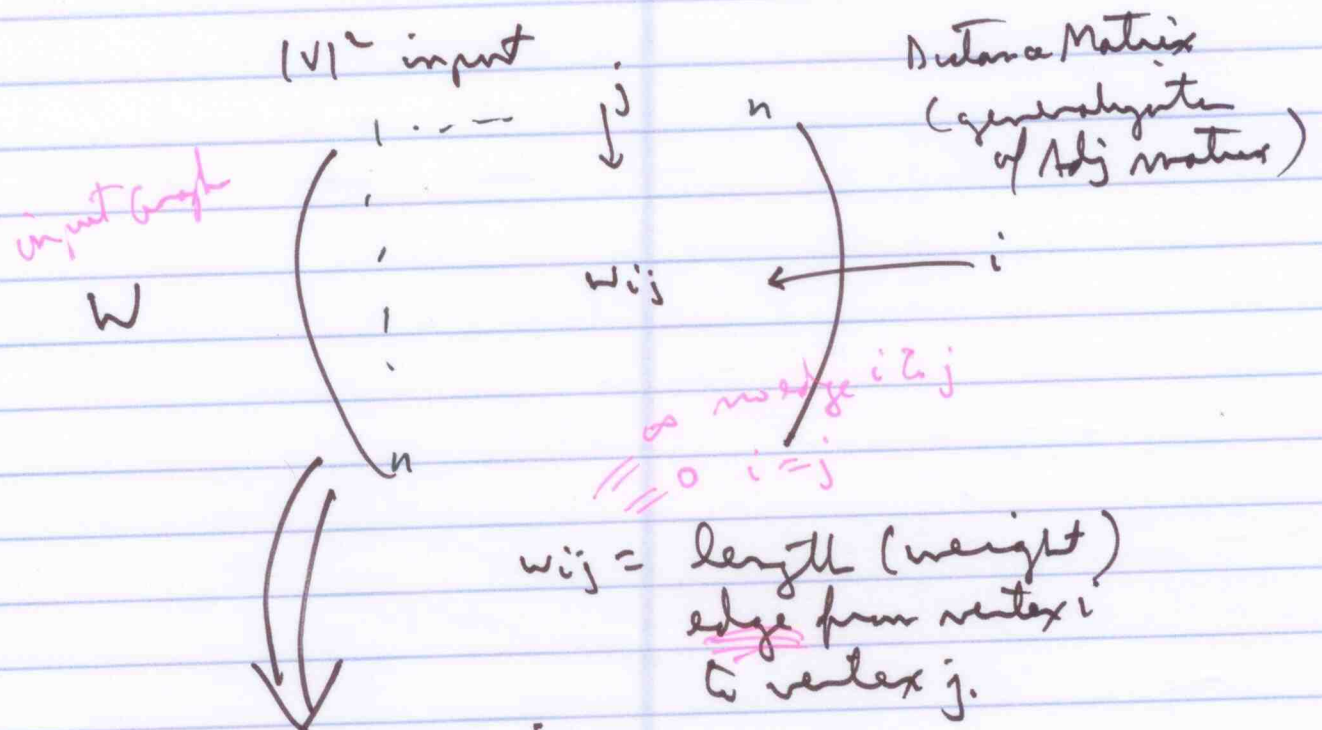 |V|² input
Distance Matrix
(generalization
of Adj matrix)
1 . - - - j n
input Graph
W
wij
i
∞ no edge i to j
0 i = j
n
wij = length (weight)
edge from vertex i
to vertex j.